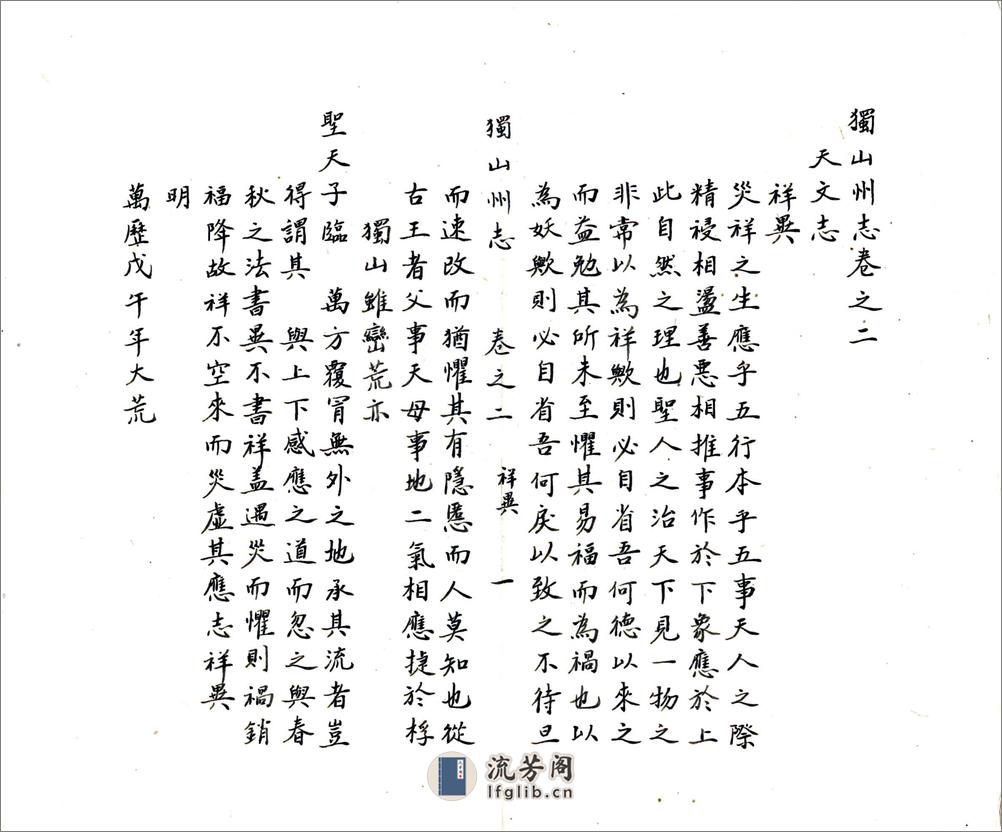 獨山州志卷之二
天文志
祥異
災祥之生應乎五行本乎五事天人之際
精祲相盪善惡相推事作於下象應於上
此自然之理也聖人之治天下見一物之
非常以為祥歟則必自省吾何德以來之
而益勉其所未至懼其易福而為禍也以
為妖歟則必自省吾何戾以致之不待旦
獨山州志 卷之二 祥異 一
而速改而猶懼其有隱慝而人莫知也從
古王者父事天母事地二氣相應捷於桴
獨山雖巒荒亦
聖天子臨 萬方覆冒無外之地承其流者豈
得謂其 與上下感應之道而忽之與春
秋之法書異不書祥盖遇災而懼則禍銷
福降故祥不空來而災虛其應志祥異
明
萬歷戊午年大荒
流芳阁
lfglib.cn